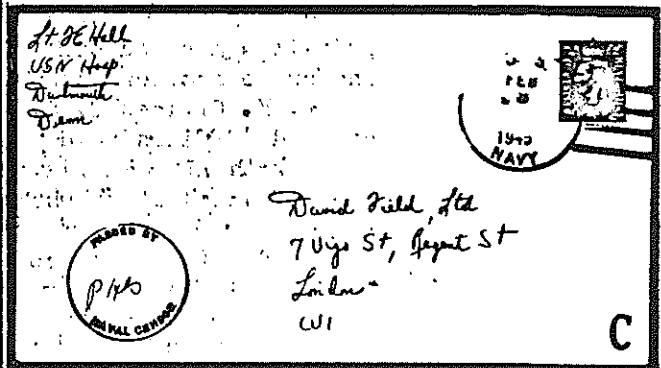 Lt. JE Hall
USN Hosp.
Dartmouth
Devon
FEB
1943
NAVY
David Field, Ltd
7 Vigo St, Regent St
London
W1
PASSED BY
NAVAL CENSOR
C